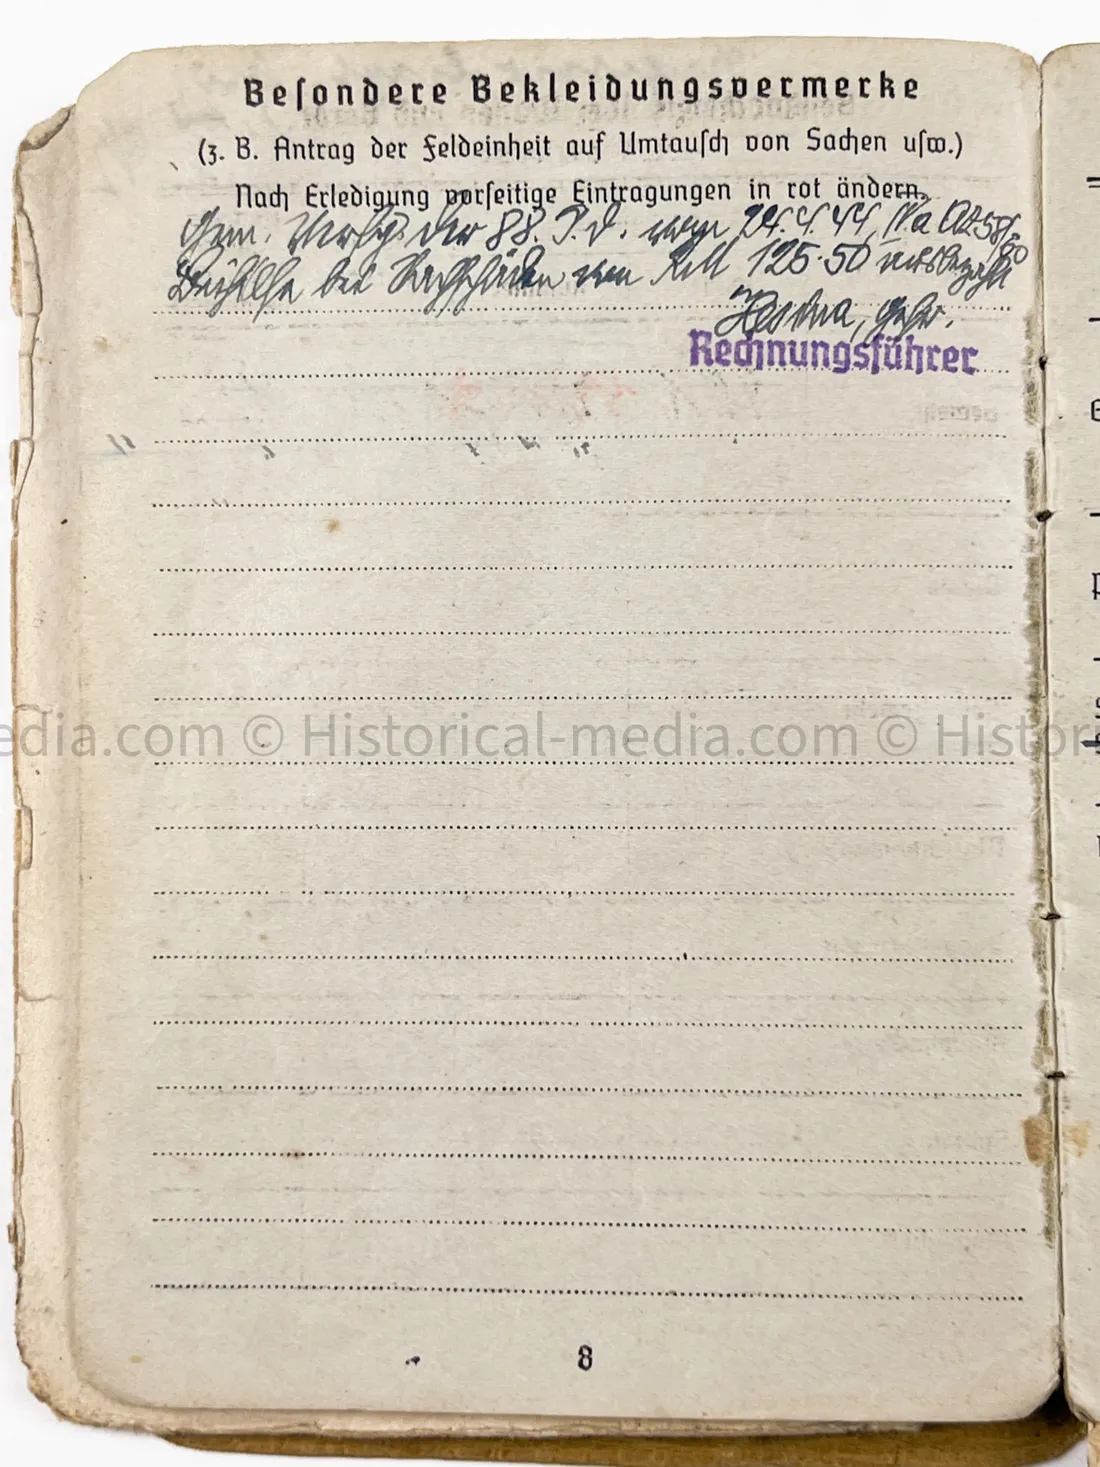 Besondere Bekleidungsvermerke
(z. B. Antrag der Feldeinheit auf Umtausch von Sachen usw.)
Nach Erledigung vorseitige Eintragungen in rot ändern.
Gem. Verfg. der 88. J.D. vom 24.4.44, IVa Az 58/
Beihilfe bei Sachschäden von RM 125.50 ausbezahlt
Gefr.
Rechnungsführer
edia.com © Historical-media.com © Histor
8